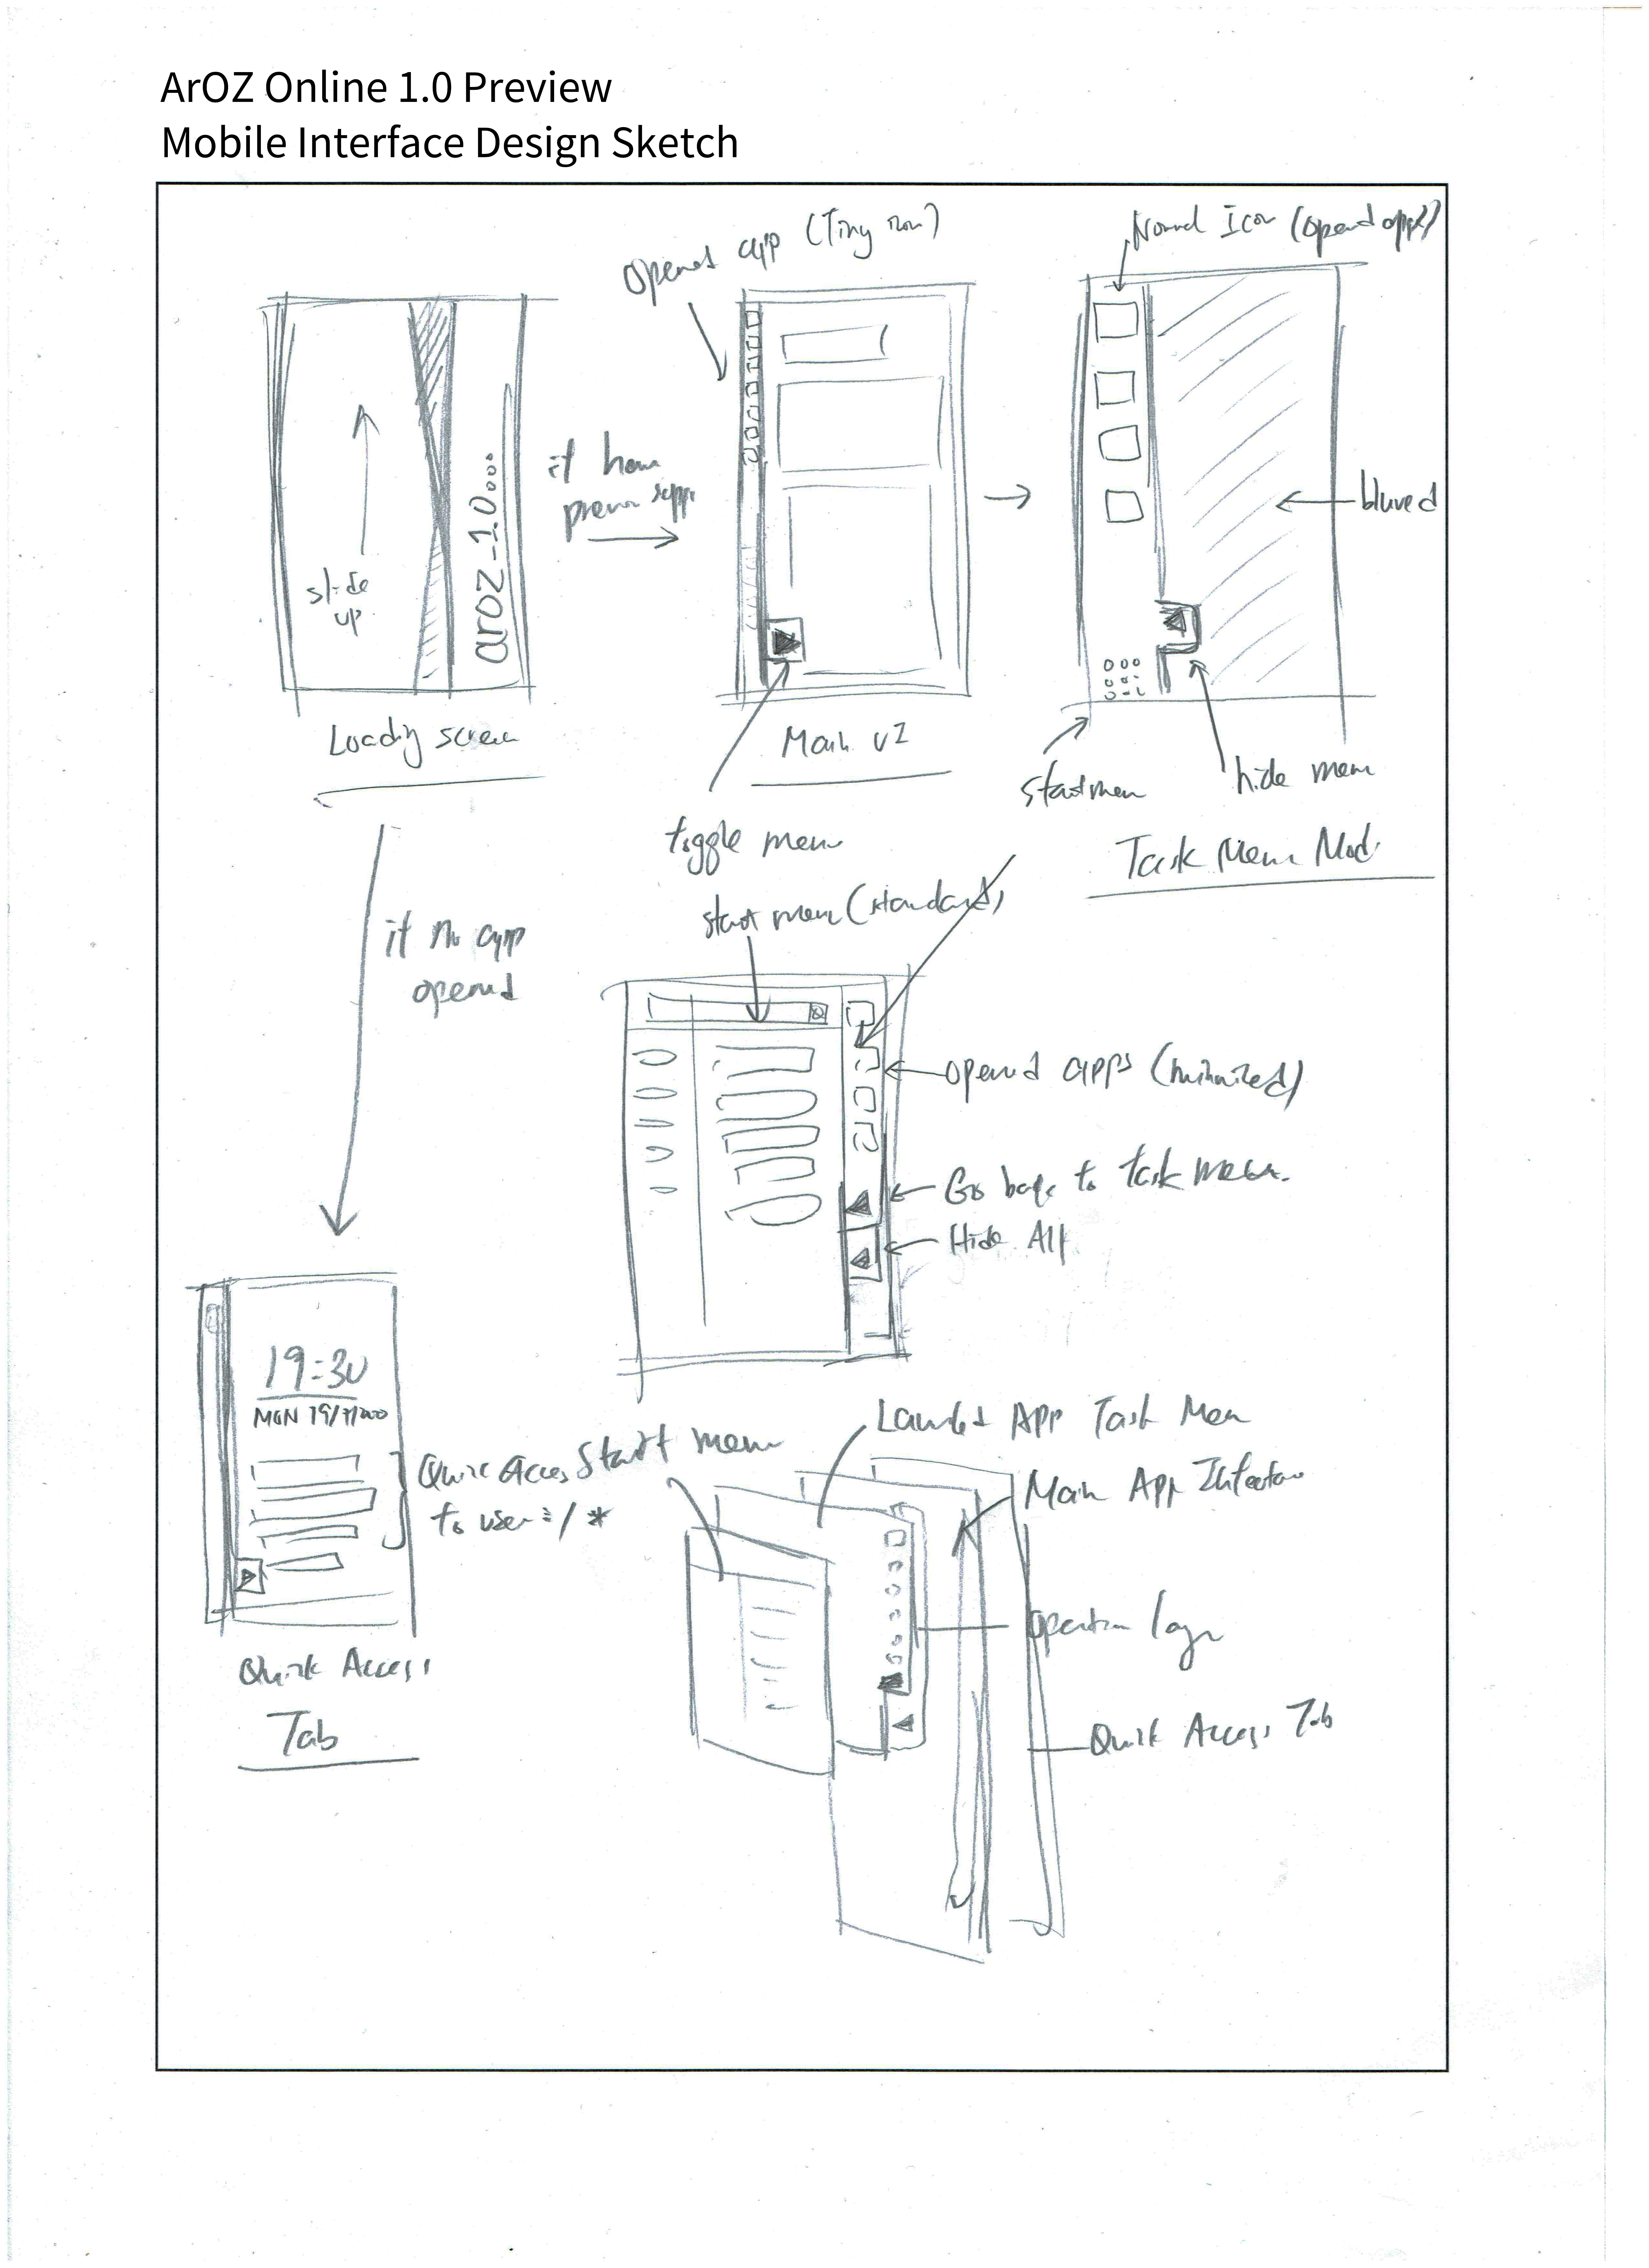 ArOZ Online 1.0 Preview
Mobile Interface Design Sketch
opened app (Tiny icon)
Normal Icon (opened apps)
slide
up
aroz_1.0...
if have
blured
Loading screen
Main v2
toggle menu
start menu
hide menu
Task Menu Mode
if no app
opened
start menu (standard)
opened apps (minimized)
Go back to task menu.
Hide All
19:30
MON
Quick Access
to user
Start menu
App Task Menu
Main App Interface
operation
Quick Access Tab
Quick Access
Tab